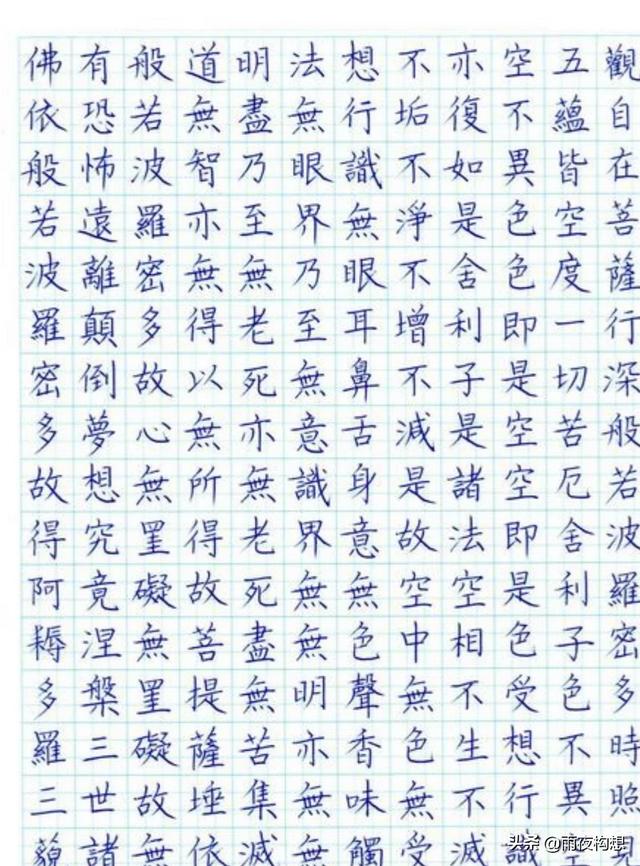 觀自在菩薩行深般若波羅密多時照
五蘊皆空度一切苦厄舍利子色不異
空不異色色即是空空即是色受想行識
亦復如是舍利子是諸法空相不生不滅
不垢不淨不增不減是故空中無色無受
想行識無眼耳鼻舌身意無色聲香味觸
法無眼界乃至無意識界無無明亦無無
明盡乃至無老死亦無老死盡無苦集滅
道無智亦無得以無所得故菩提薩埵依
般若波羅密多故心無罣礙無罣礙故無
有恐怖遠離顛倒夢想究竟涅槃三世諸
佛依般若波羅密多故得阿耨多羅三藐
头条 @雨夜构想